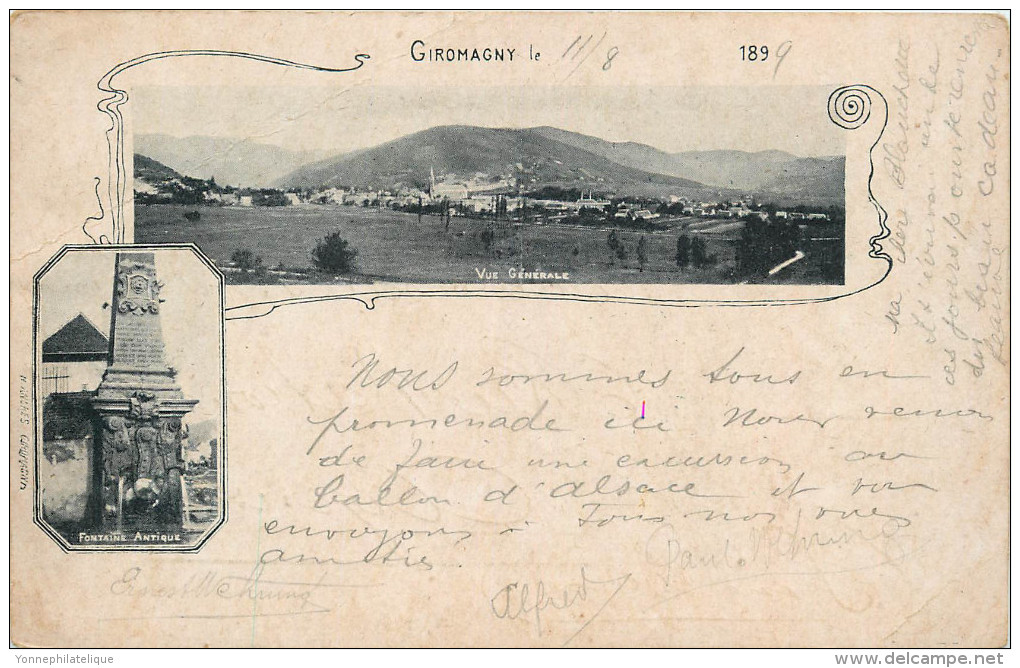 GIROMAGNY le 11/8 1899
VUE GÉNÉRALE
FONTAINE ANTIQUE
Nous sommes tous en
promenade ici Nous venons
de faire une excursion au
ballon d'alsace et vous
envoyons à tous nos
amitiés.
Ernest Wehrung
Alfred
Paul Wehrung
ma chère Blanche
ces jours pour
du beau cadeau
Yonnephilatelique
delcampe.net